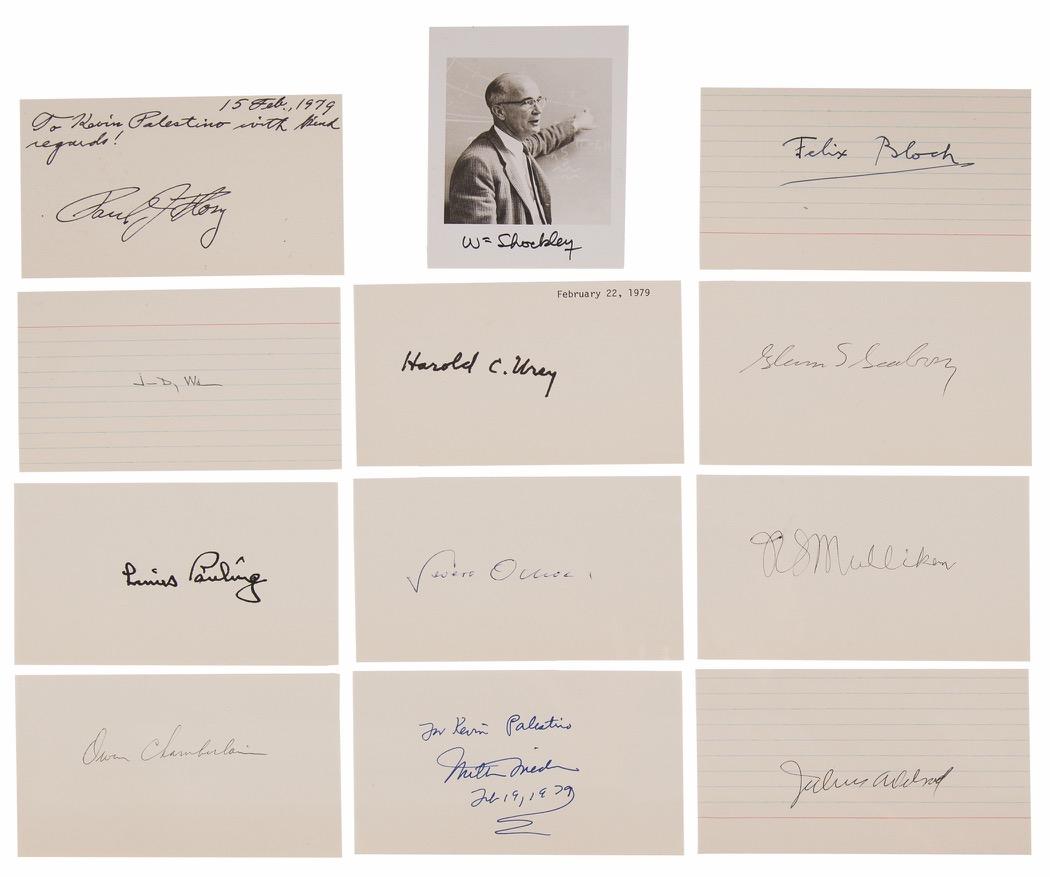 15 Feb., 1979
To Kevin Palestino with kind
regards!
Paul J Flory
W= Shockley
Felix Bloch
February 22, 1979
Harold C. Urey
Glenn T Seaborg
Linus Pauling
Severo Ochoa
R S Mulliken
Owen Chamberlain
For Kevin Palestino
Milton Friedman
Feb 19, 1979
Julius Axelrod